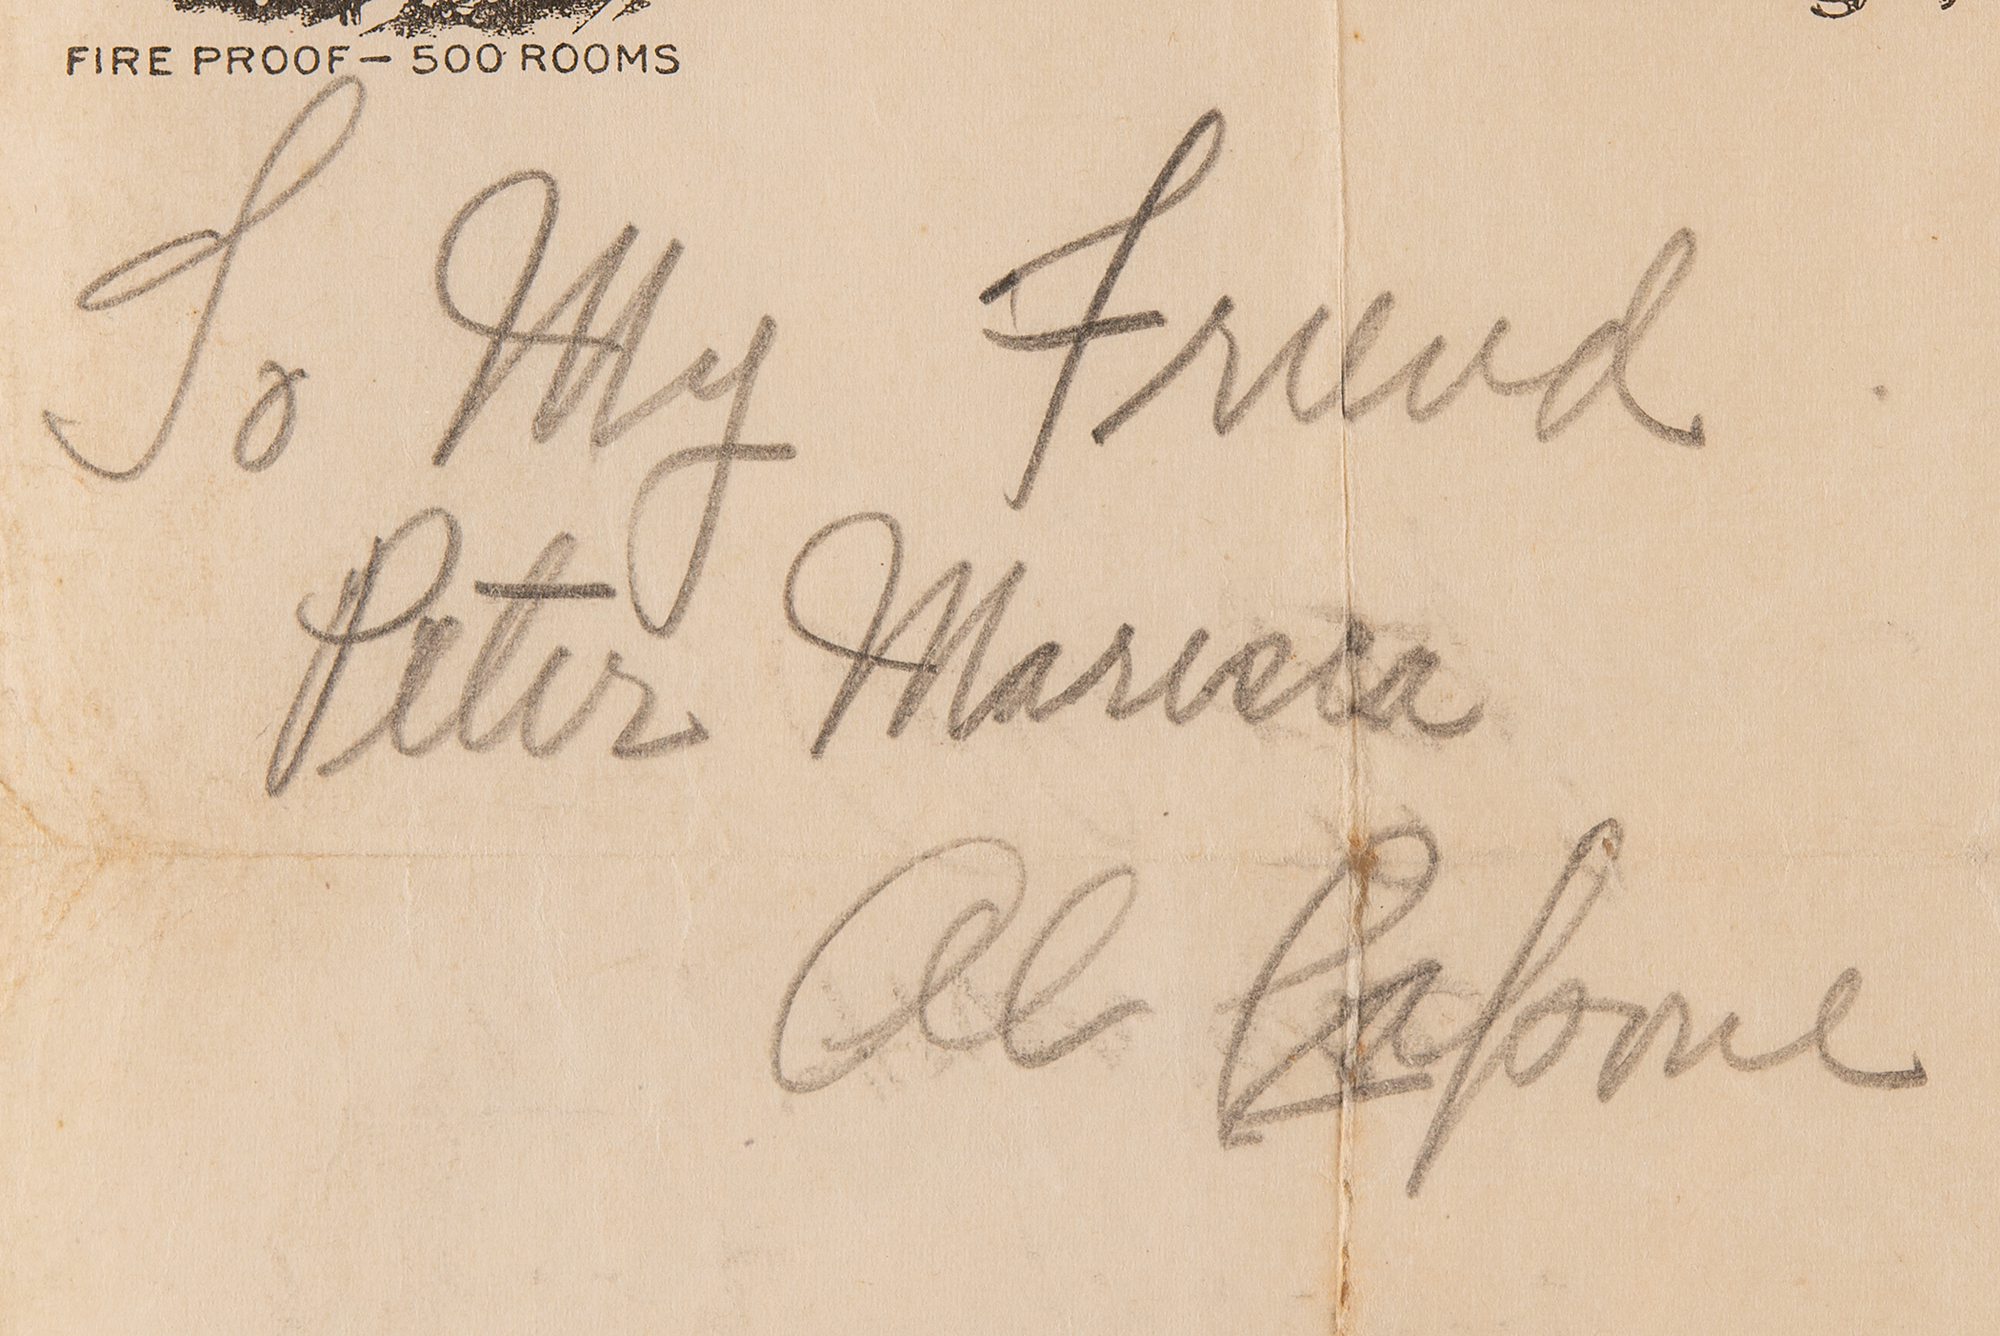 FIRE PROOF — 500 ROOMS
To My Friend
Peter
Al Capone